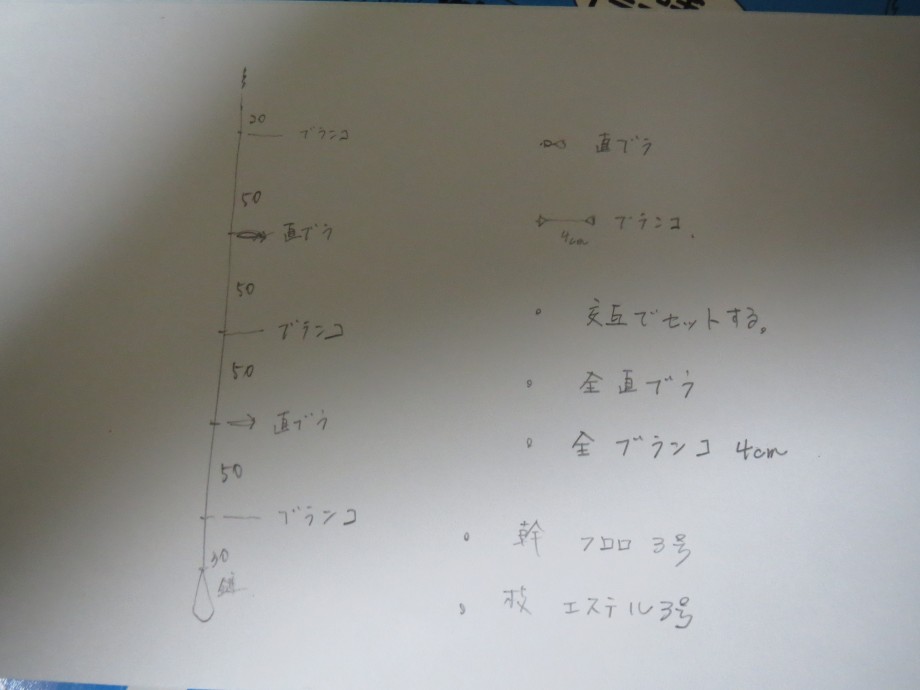 20
ブランコ
50
直ブラ
50
ブランコ
50
直ブラ
50
ブランコ
30
錘
直ブラ
4cm ブランコ
。交互でセットする。
。全直ブラ
。全ブランコ 4cm
。幹 フロロ 3号
。枝 エステル 3号